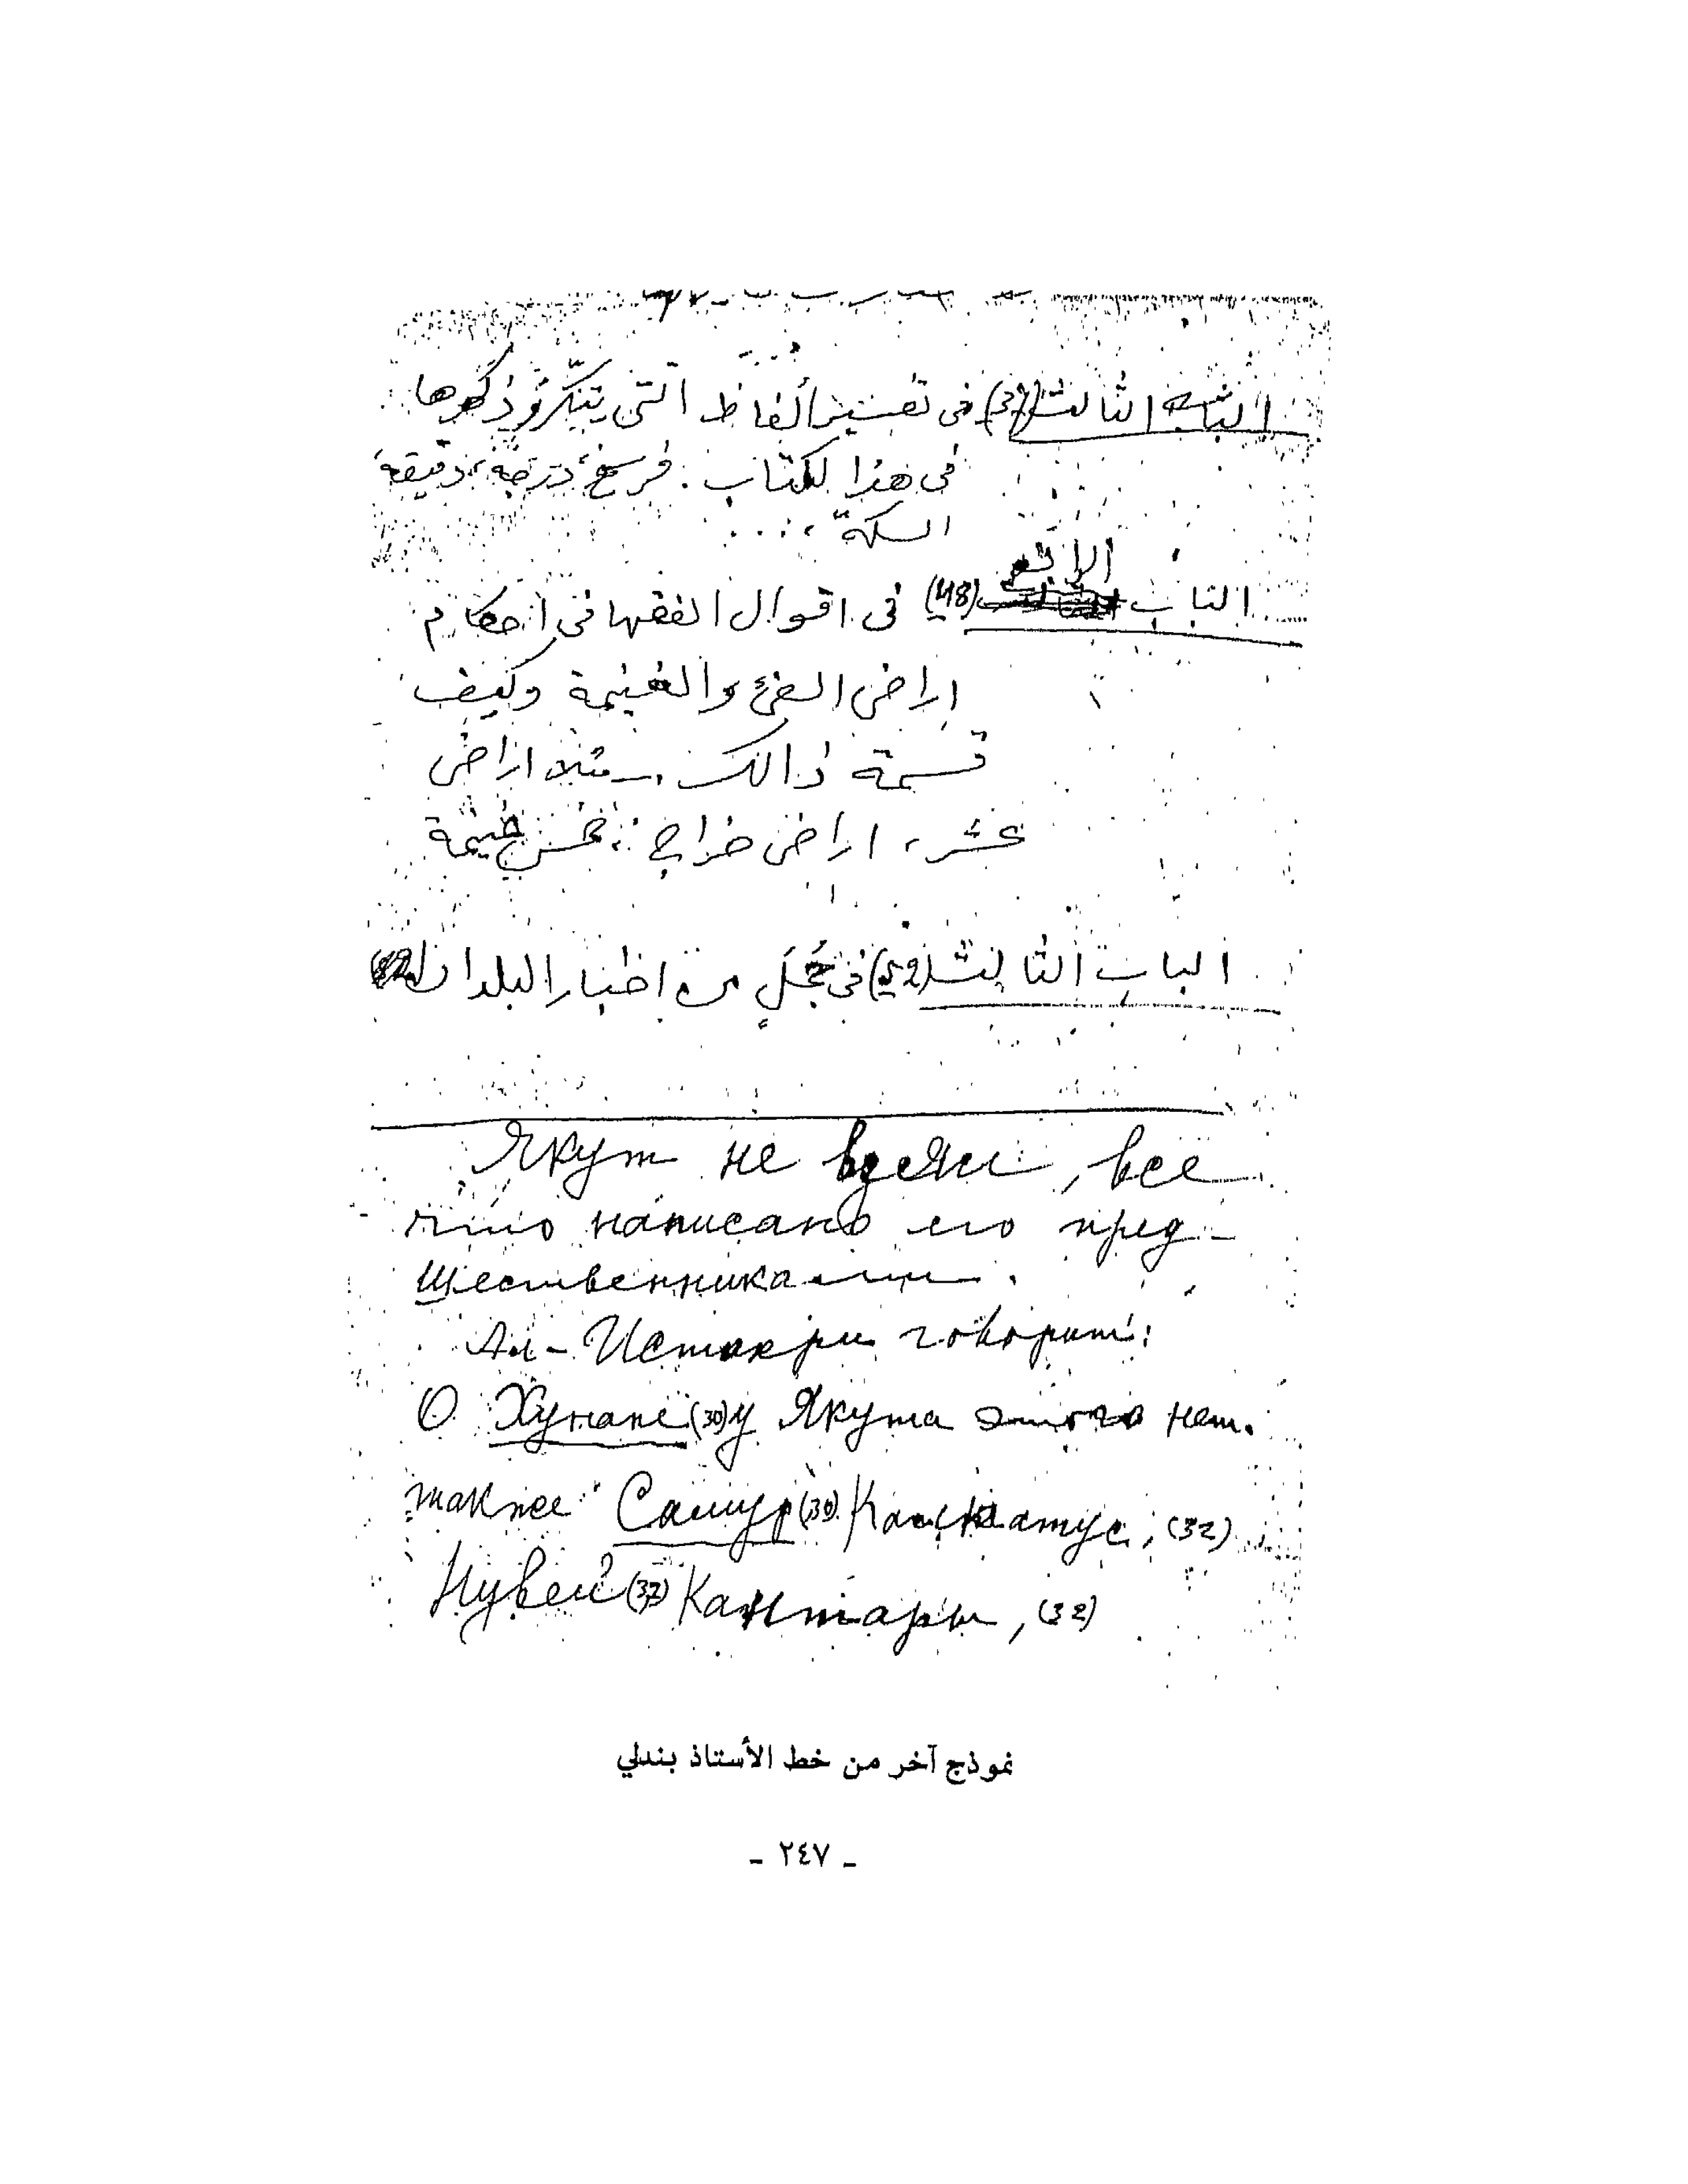 الباب الثالث في تفسير ألفاظ التي يتكرّر ذكرها
في هذا لكتاب. فرسخ، درجة، دقيقة
السكة، ....
الرابع
الباب (48) في اقوال الفقها في احكام
اراضى الفئ والغنيمة وكيف
قسمة ذالك . مثلا اراضى
عشر، اراضى خراج، خمس غنيمة
الباب الثالث في جُملٍ من اخبار البلدان
Якут не все
что написано его пред-
шественниками.
Ал-Истахри говорит:
О Хунане (30) у Якута этого нет.
также Самур (30) (32)
(37) Кантары, (32)
نموذج آخر من خط الأستاذ بندلي
- ٢٤٧ -